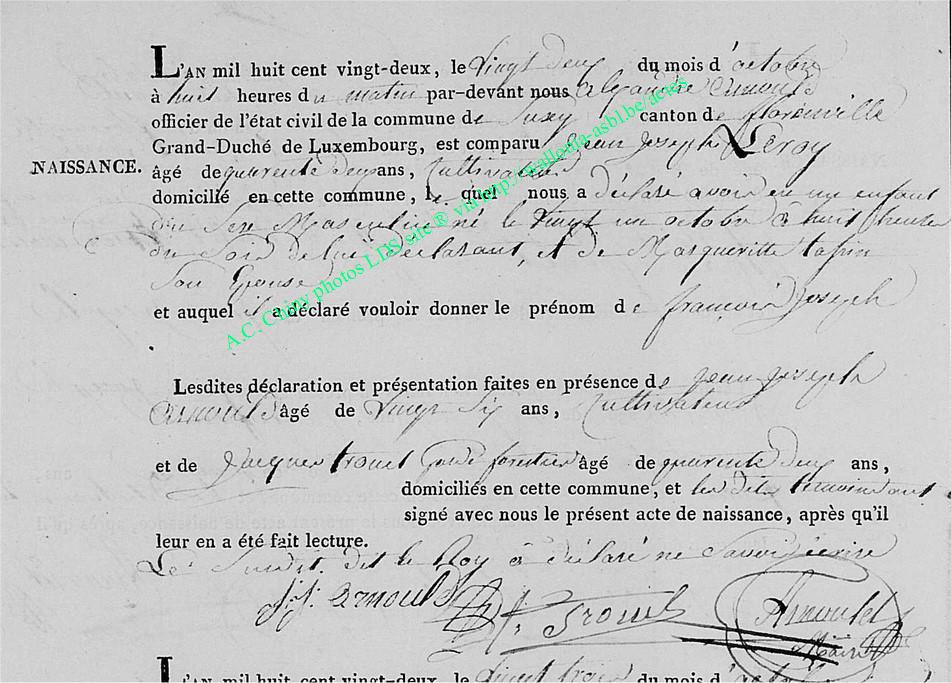 L'AN mil huit cent vingt-deux, le vingt deux du mois d'octobre
à huit heures du matin par-devant nous alexandre arnould
officier de l'état civil de la commune de Suxy canton de florenville
Grand-Duché de Luxembourg, est comparu Jean Joseph Leroy
NAISSANCE.
âgé de quarente deux ans, cultivateur
domicilié en cette commune, le quel nous a déclaré avoir eu un enfant
du Sexe Masculin né le vingt un octobre à huit heure
du Soir de lui déclarant, et de Margueritte
Son Epouse
et auquel il a déclaré vouloir donner le prénom de françois Joseph
Lesdites déclaration et présentation faites en présence de Jean Joseph
arnould âgé de vingt Six ans, cultivateur
et de Jacques trouet garde forestier âgé de quarente deux ans,
domiciliés en cette commune, et les dits temoins ont
signé avec nous le présent acte de naissance, après qu'il
leur en a été fait lecture.
Le Susdit dit le Roy a déclaré ne Savoir écrire
J.J. arnould
Arnould
Maire
L'AN mil huit cent vingt-deux, le vingt trois du mois d'octobre
A.C. Chiny photos LDS site® via http://wallonia-asbl.be/actes